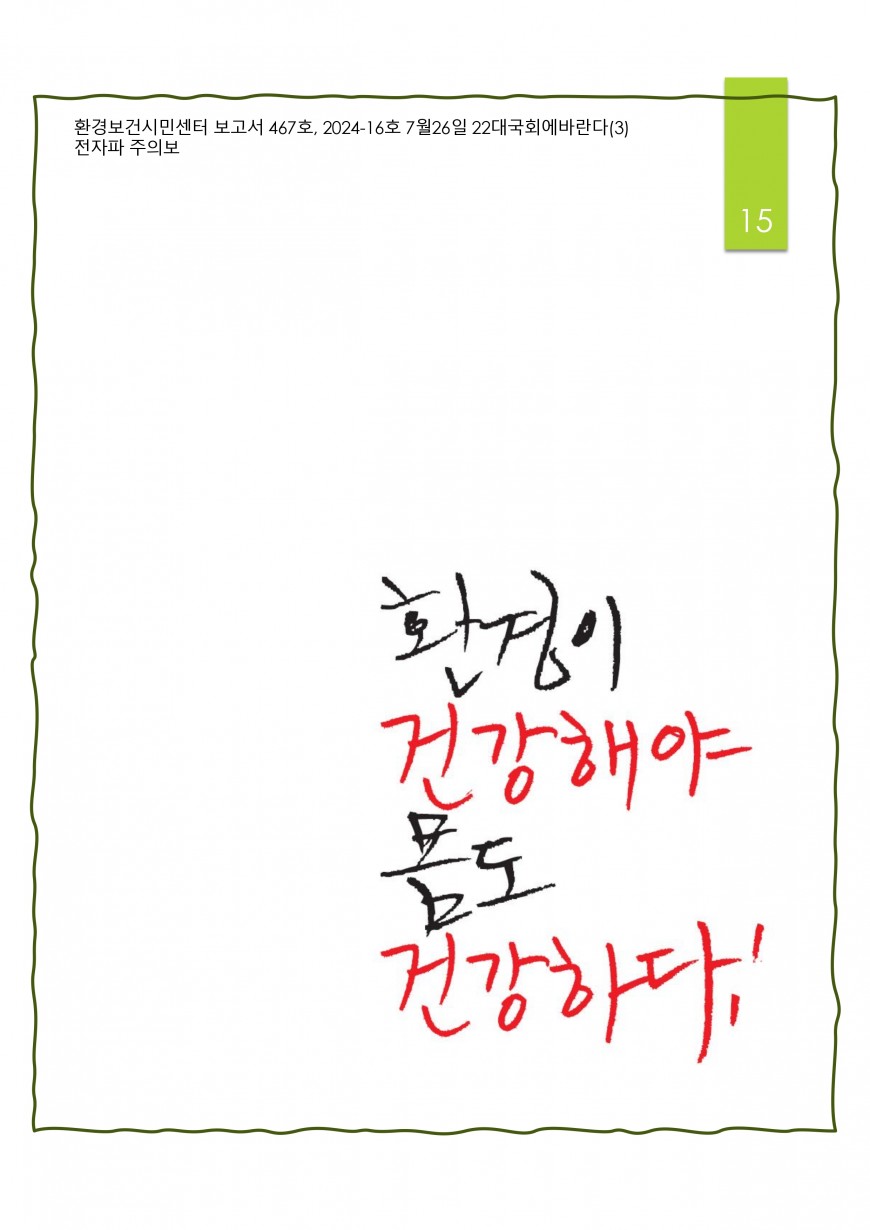 환경보건시민센터 보고서 467호, 2024-16호 7월26일 22대국회에바란다(3)
전자파 주의보
15
환경이
건강해야
몸도
건강하다!